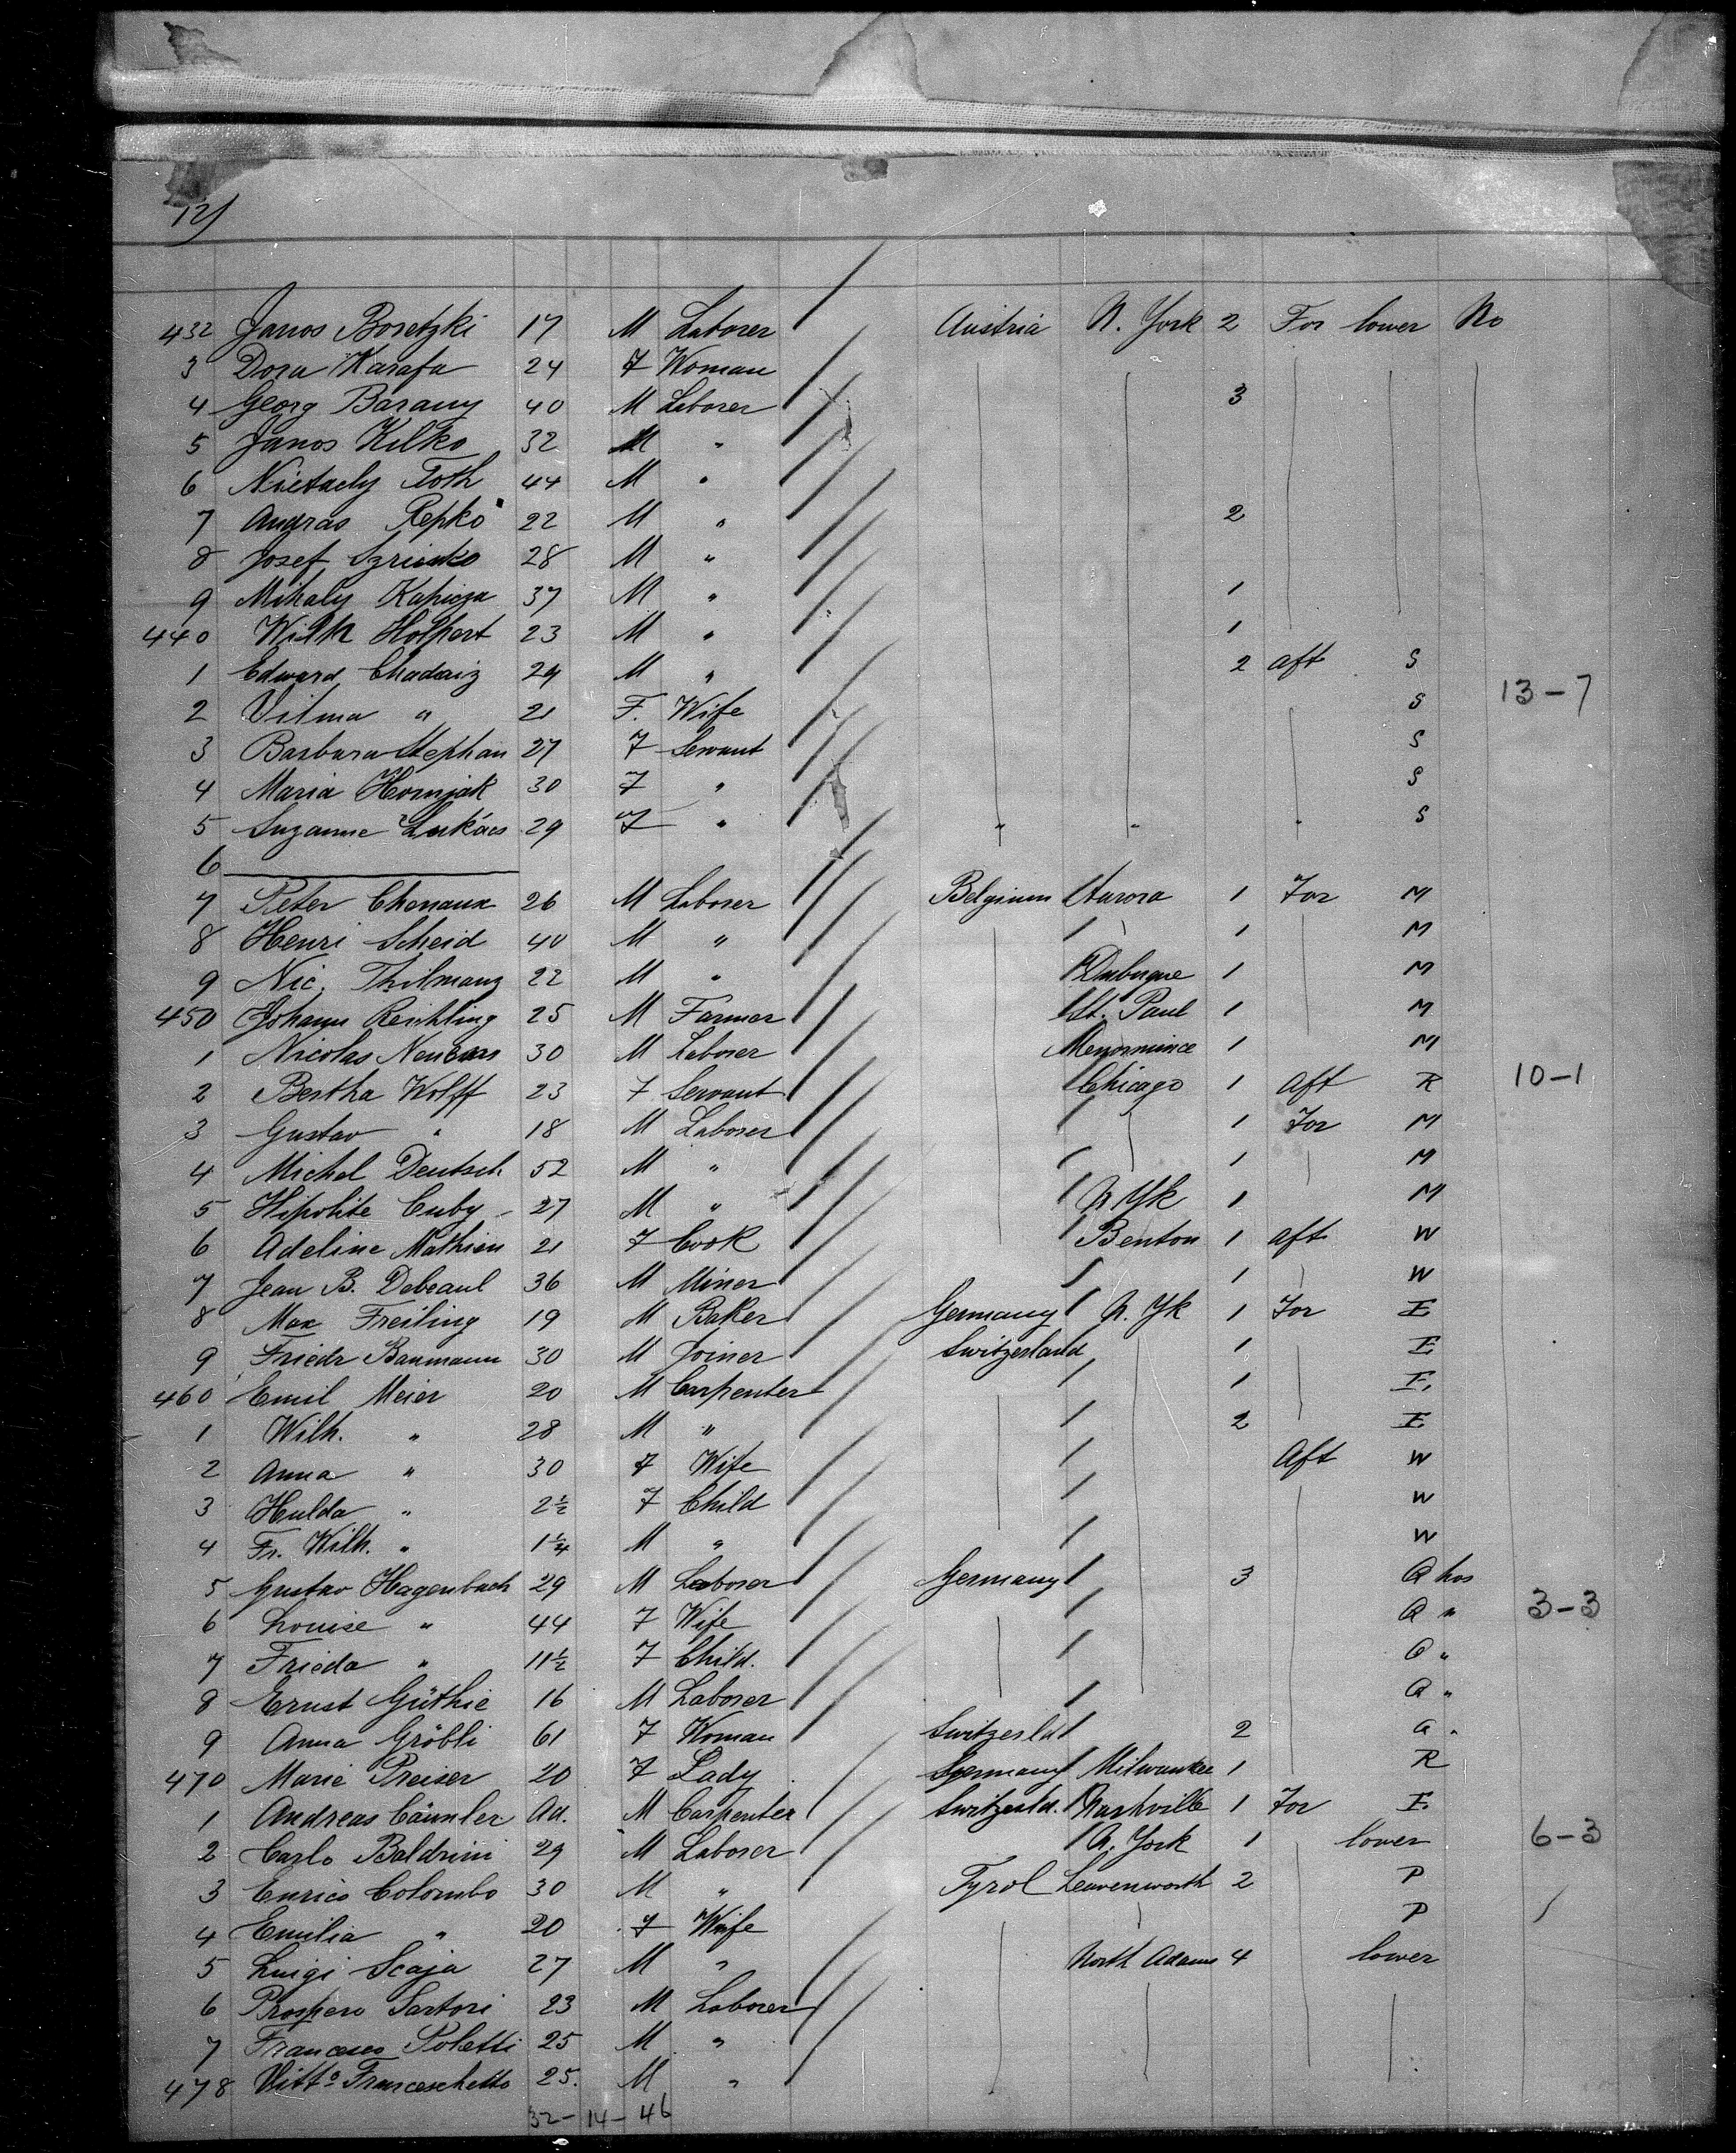 12)
432 Janos Bosetzki 17 M Laborer Austria N. York 2 For lower No
3 Dora Karafa 24 F Woman
4 Georg Barany 40 M Laborer 3
5 Janos Kilko 32 M "
6 Toth 44 M "
7 Andras Repko 22 M " 2
8 Josef 28 M "
9 Mihaly Kapicza 37 M " 1
440 Wilh Holpert 23 M " 1
1 Edward Chadaiz 24 M " 2 aft S
2 Vilma " 21 F. Wife S 13-7
3 Barbara Stephan 27 F Servant S
4 Maria Hornjak 30 F " S
5 Suzanne Lukács 29 F " " " " S
6
7 Peter Chenaux 26 M Laborer Belgium Aurora 1 For M
8 Henri Scheid 40 M " 1 M
9 Nic. Thilmany 22 M " Dubuque 1 M
450 Johann Reichling 25 M Farmer St. Paul 1 M
1 Nicolas 30 M Laborer Menominee 1 M
2 Bertha Wolff 23 F Servant Chicago 1 Aft R 10-1
3 Gustav " 18 M Laborer 1 For M
4 Michel Deutsch 52 M " 1 M
5 Hipolite Cuby 27 M " N Yk 1 M
6 Adeline Mathieu 21 F Cook Benton 1 aft W
7 Jean B. Debeaul 36 M Miner 1 W
8 Max Freiling 19 M Baker Germany N. Yk 1 For E
9 Friedr Baumann 30 M Joiner Switzerland 1 E
460 Emil Meier 20 M Carpenter 1 E.
1 Wilh. " 28 M " 2 E
2 Anna " 30 F Wife Aft W
3 Hulda " 2½ F Child W
4 Fr. Wilh. " 1¼ M " W
5 Gustav Hagenbach 29 M Laborer Germany 3 Q hos
6 Louise " 44 F Wife Q " 3-3
7 Frieda " 11½ F Child. Q "
8 Ernst Güthie 16 M Laborer Q "
9 Anna Gröbli 61 F Woman Switzerld 2 Q "
470 Marie Preiser 20 F Lady Germany Milwaukee 1 R
1 Andreas Cäunler Ad. M Carpenter Switzerld. Nashville 1 For E.
2 Carlo Baldrini 29 M Laborer N. York 1 lower 6-3
3 Enrico Colombo 30 M " Tyrol Leavenworth 2 P
4 Emilia " 20 F Wife P
5 Luigi Scaja 27 M " North Adams 4 lower
6 Prospero Sartori 23 M Laborer
7 Francesco Poletti 25 M "
478 Vitto Franceschetto 25. M "
32- 14- 46